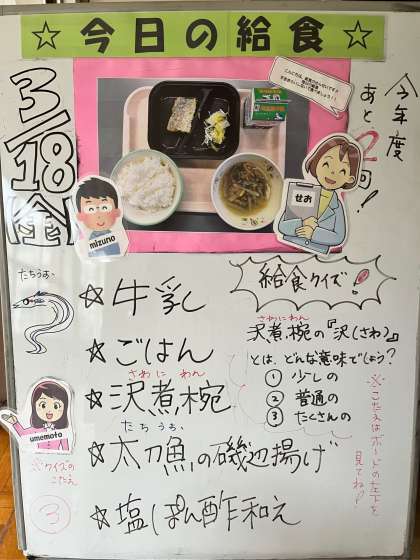 ☆今日の給食☆
3/18金
今年度
あと2回!
せお
mizuno
たちうお
☆牛乳
☆ごはん
さわにわん
☆沢煮椀
たちうお
☆太刀魚の磯辺揚げ
☆塩ぽん酢和え
給食クイズ!
さわにわん
沢煮椀の『沢(さわ)』
とは、どんな意味でしょう?
① 少しの
② 普通の
③ たくさんの
※こたえはボードの左下を
見てね!
umemoto
※クイズの
こたえ
③